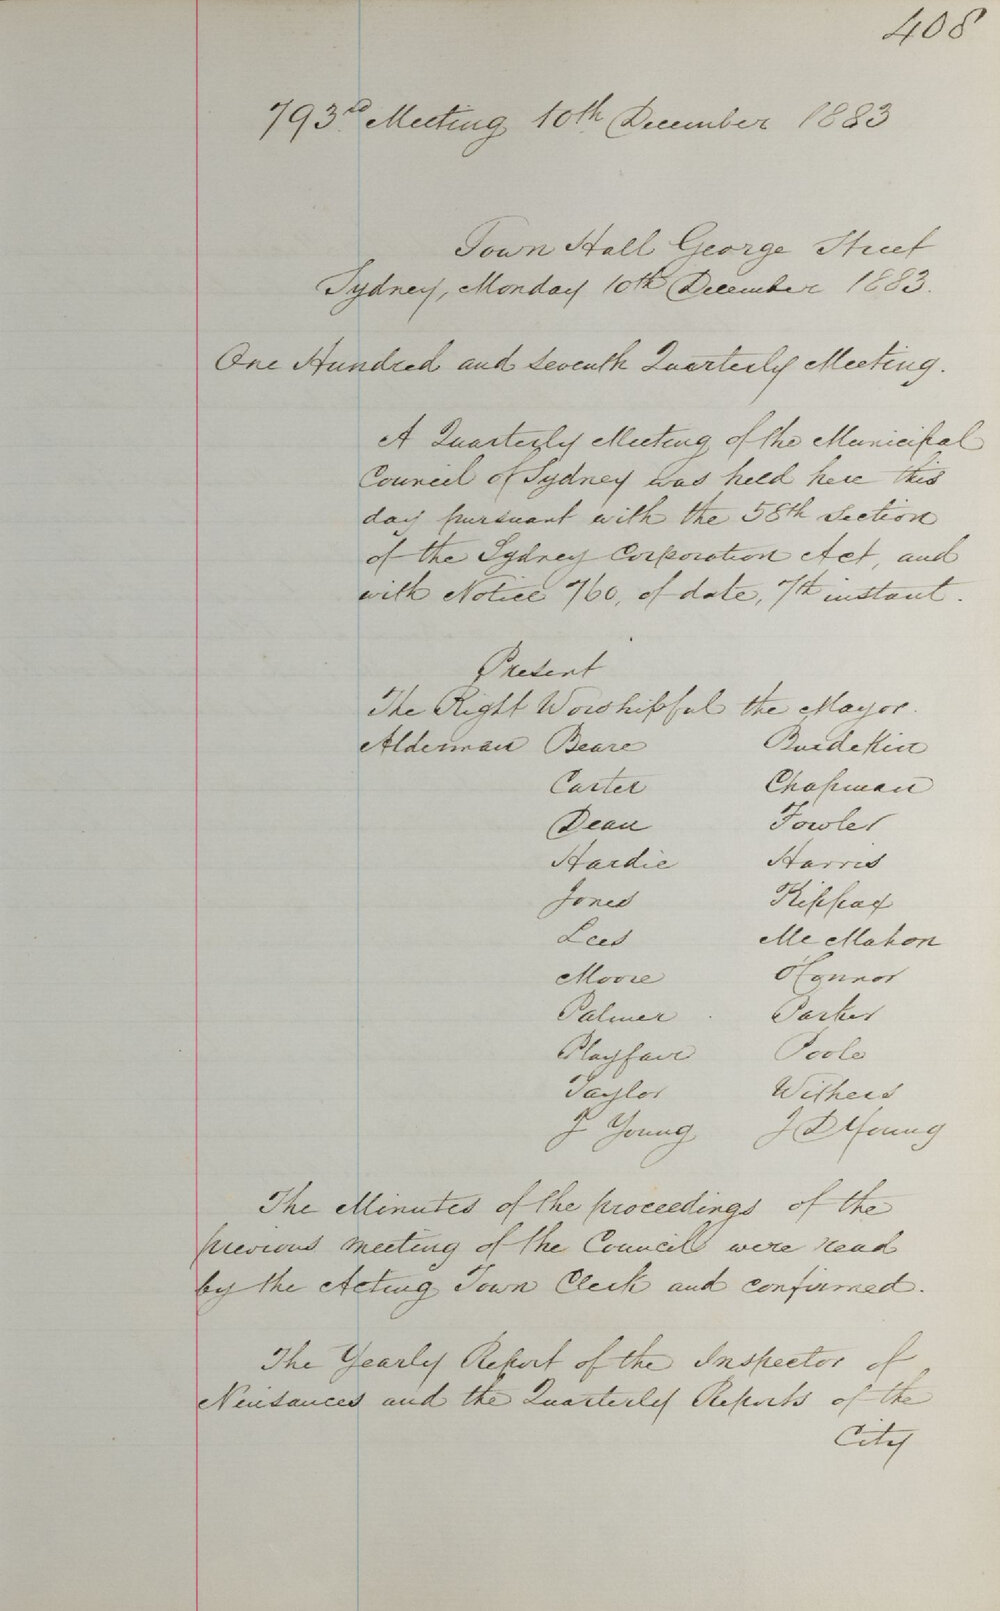 408
793rd Meeting 10th December 1883
Town Hall George Street
Sydney, Monday 10th December 1883.
One Hundred and seventh Quarterly Meeting.
A Quarterly Meeting of the Municipal
Council of Sydney was held here this
day pursuant with the 58th section
of the Sydney Corporation Act, and
with Notice 760, of date, 7th instant.
Present
The Right Worshipful the Mayor.
Alderman Beare Burdekin
Carter Chapman
Dean Fowler
Hardie Harris
Jones Kippax
Lees Mc Mahon
Moore O'Connor
Palmer Parker
Playfair Poole
Taylor Withers
J Young J D Young
The Minutes of the proceedings of the
previous meeting of the Council were read
by the Acting Town Clerk and confirmed.
The Yearly Report of the Inspector of
Nuisances and the Quarterly Reports of the
City